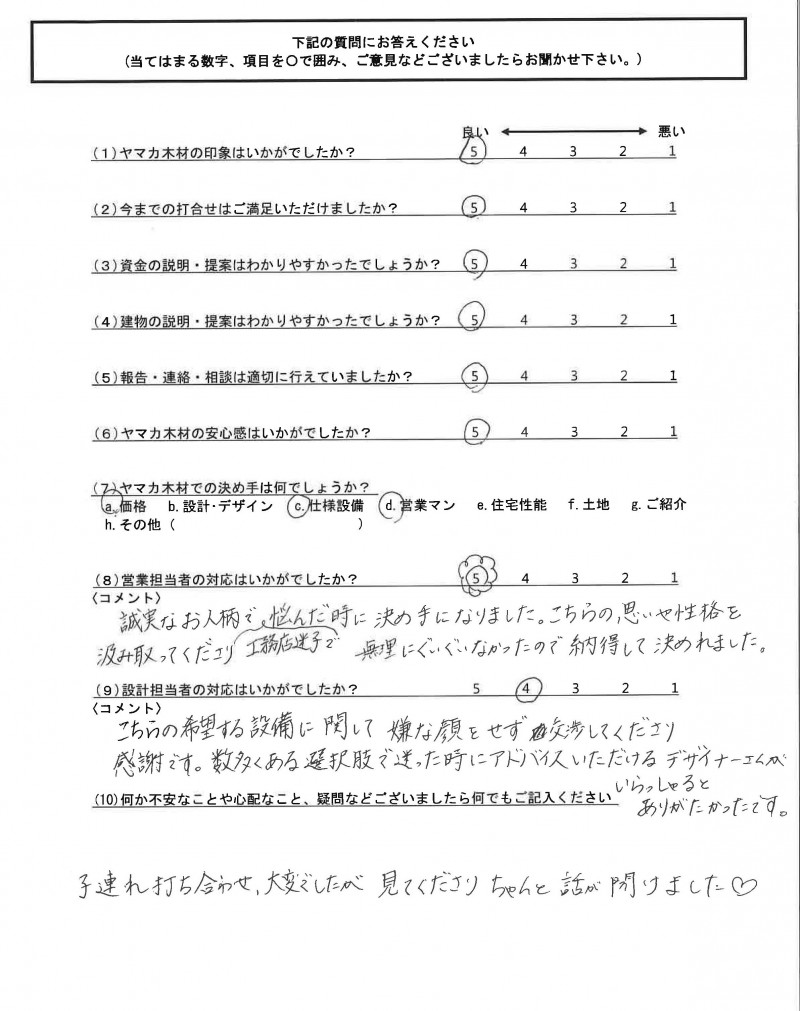 下記の質問にお答えください
(当てはまる数字、項目を○で囲み、ご意見などございましたらお聞かせ下さい。)
良い 悪い
(1)ヤマカ木材の印象はいかがでしたか? 5 4 3 2 1
(2)今までの打合せはご満足いただけましたか? 5 4 3 2 1
(3)資金の説明・提案はわかりやすかったでしょうか? 5 4 3 2 1
(4)建物の説明・提案はわかりやすかったでしょうか? 5 4 3 2 1
(5)報告・連絡・相談は適切に行えていましたか? 5 4 3 2 1
(6)ヤマカ木材の安心感はいかがでしたか? 5 4 3 2 1
(7)ヤマカ木材での決め手は何でしょうか?
a.価格 b.設計・デザイン c.仕様設備 d.営業マン e.住宅性能 f.土地 g.ご紹介
h.その他( )
(8)営業担当者の対応はいかがでしたか? 5 4 3 2 1
〈コメント〉
誠実なお人柄で、悩んだ時に決め手になりました。こちらの思いや性格を
汲み取ってくださり 工務店迷子で 無理にぐいぐいなかったので納得して決めれました。
(9)設計担当者の対応はいかがでしたか? 5 4 3 2 1
〈コメント〉
こちらの希望する設備に関して嫌な顔をせず交渉してくださり
感謝です。数多くある選択肢で迷った時にアドバイスいただけるデザイナーさんが
いらっしゃると
ありがたかったです。
(10)何か不安なことや心配なこと、疑問などございましたら何でもご記入ください
子連れ打ち合わせ、大変でしたが見てくださりちゃんと話が聞けました♡